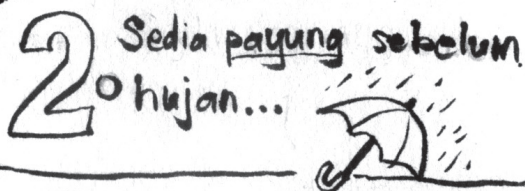 2. Sedia payung sebelum
hujan...